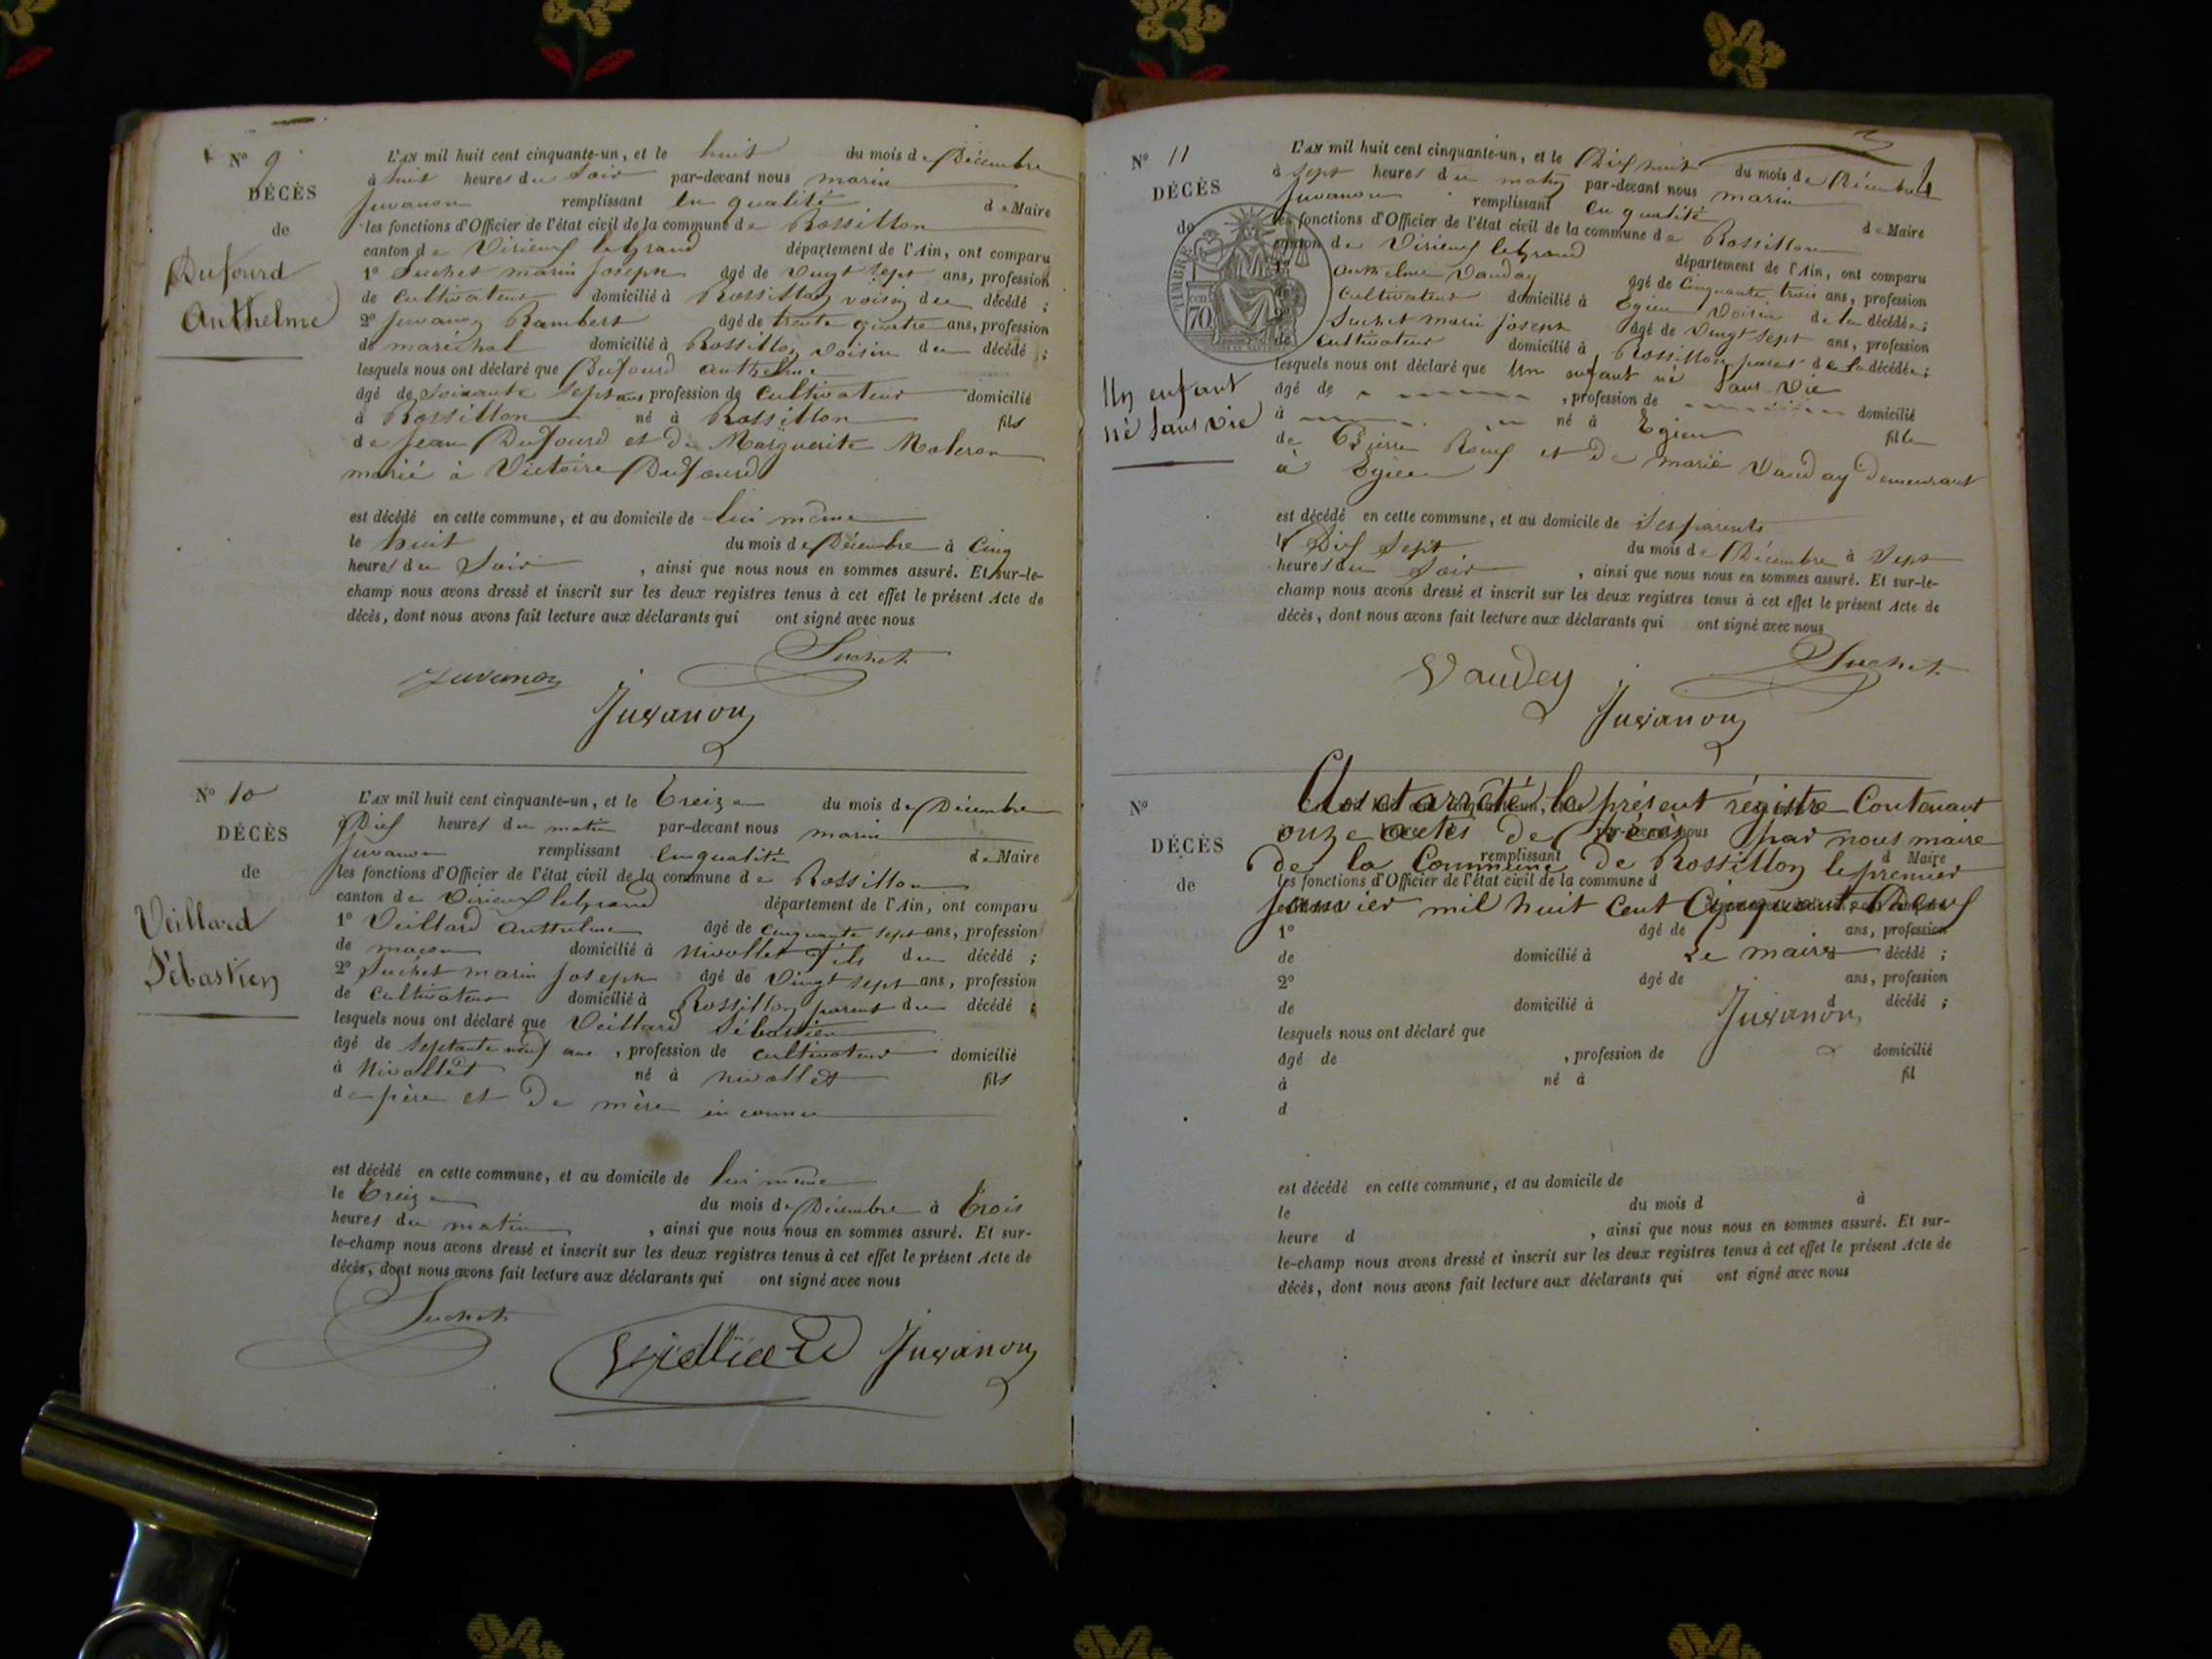 N° 9
DÉCÈS
de
Dufourd
Anthelme
L'AN mil huit cent cinquante-un, et le huit du mois de Décembre
à huit heures du Soir par-devant nous marin
Juvanon remplissant en qualité de Maire
les fonctions d'Officier de l'état civil de la commune de Rossillon
canton de Virieux legrand département de l'Ain, ont comparu
1° Suchet marin joseph âgé de vingt sept ans, profession
de cultivateur domicilié à Rossillon voisin du décédé ;
2° Juvanon Rambert âgé de trente quatre ans, profession
de maréchal domicilié à Rossillon voisin du décédé ;
lesquels nous ont déclaré que Dufourd anthelme
âgé de soixante sept ans profession de cultivateur domicilié
à Rossillon né à Rossillon fils
de jean Dufourd et de Marguerite
marié à Victoire Dufourd
est décédé en cette commune, et au domicile de lui même
le huit du mois de Décembre à Cinq
heures du Soir , ainsi que nous nous en sommes assuré. Et sur-le-
champ nous avons dressé et inscrit sur les deux registres tenus à cet effet le présent Acte de
décès, dont nous avons fait lecture aux déclarants qui ont signé avec nous
Suchet
Juvanon
Juvanon
N° 10
DÉCÈS
de
Veillard
Sébastien
L'AN mil huit cent cinquante-un, et le treize du mois de Décembre
à Dix heures du matin par-devant nous marin
Juvanon remplissant en qualité de Maire
les fonctions d'Officier de l'état civil de la commune de Rossillon
canton de Virieux legrand département de l'Ain, ont comparu
1° Veillard anthelme âgé de cinquante sept ans, profession
de maçon domicilié à nivollet fils du décédé ;
2° Suchet marin joseph âgé de vingt sept ans, profession
de cultivateur domicilié à Rossillon parent du décédé ;
lesquels nous ont déclaré que Veillard Sébastien
âgé de septante neuf ans , profession de cultivateur domicilié
à Nivollet né à nivollet fils
de père et de mère inconnu
est décédé en cette commune, et au domicile de lui même
le treize du mois de Décembre à trois
heures du matin , ainsi que nous nous en sommes assuré. Et sur-
le-champ nous avons dressé et inscrit sur les deux registres tenus à cet effet le présent Acte de
décès, dont nous avons fait lecture aux déclarants qui ont signé avec nous
Suchet
Juvanon
N° 11
DÉCÈS
de
TIMBRE
70
Un enfant
né sans vie
L'AN mil huit cent cinquante-un, et le Dix huit du mois de Décembre
à sept heures du matin par-devant nous marin
Juvanon remplissant en qualité de Maire
les fonctions d'Officier de l'état civil de la commune de Rossillon
canton de Virieux legrand département de l'Ain, ont comparu
1° anthelme Vauday âgé de cinquante trois ans, profession
de cultivateur domicilié à Egieu voisin de la décédée ;
2° Suchet marin joseph âgé de vingt sept ans, profession
de cultivateur domicilié à Rossillon parent de la décédée ;
lesquels nous ont déclaré que Un enfant né sans vie
âgé de , profession de domicilié
à né à Egieu fille
de Pierre et de marie Vauday demeurant
à Egieu
est décédé en cette commune, et au domicile de ses parents
le Dix sept du mois de Décembre à sept
heures du Soir , ainsi que nous nous en sommes assuré. Et sur-le-
champ nous avons dressé et inscrit sur les deux registres tenus à cet effet le présent Acte de
décès, dont nous avons fait lecture aux déclarants qui ont signé avec nous
Suchet
Vaudey
Juvanon
N°
DÉCÈS
de
Clos et arrêté le présent régistre Contenant
onze actes de Décès par nous maire
remplissant d Maire
de la Commune de Rossillon le premier
les fonctions d'Officier de l'état civil de la commune d
janvier mil huit cent Cinquante Deux
1° âgé de ans, profession
de domicilié à décédé ;
Le maire
2° âgé de ans, profession
de domicilié à d décédé ;
Juvanon
lesquels nous ont déclaré que
âgé de , profession de domicilié
à né à fil
d
est décédé en cette commune, et au domicile de
le du mois d à
heure d , ainsi que nous nous en sommes assuré. Et sur-
le-champ nous avons dressé et inscrit sur les deux registres tenus à cet effet le présent Acte de
décès, dont nous avons fait lecture aux déclarants qui ont signé avec nous